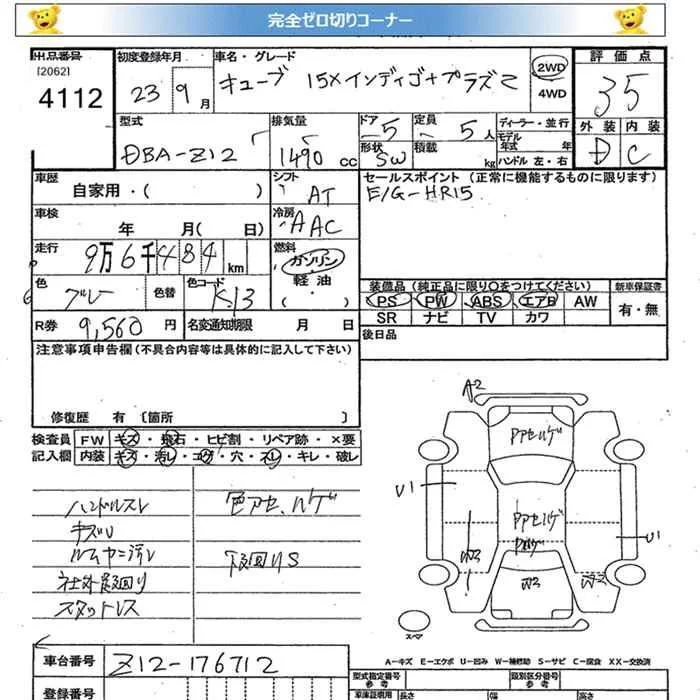 完全ゼロ切りコーナー
出品番号 初度登録年月 車名・グレード 評価点
[2062] 4112 23年 9月 キューブ 15Xインディゴ+プラズマ 2WD 4WD 35
型式 排気量 ドア 定員 ディーラー・並行 外装 内装
DBA-Z12 1490cc 5 5人 モデル年式 年 D C
形状 SW 積載 kg ハンドル 左・右
車歴 シフト セールスポイント(正常に機能するものに限ります)
自家用・( ) AT E/G-HR15
車検 冷房
年 月( 日) AAC
走行 燃料
9万6千484km ガソリン・軽油・( )
色 色替 色コード 装備品(純正品に限り○をつけてください) 新車保証書
グレー K13 PS PW ABS エアB AW 有・無
SR ナビ TV カワ
R券 9,560円 名変通知期限 月 日 後日品
注意事項申告欄(不具合内容等は具体的に記入して下さい)
修復歴 有 〔箇所 〕
検査員 FW キズ・飛石・ヒビ割・リペア跡・×要
記入欄 内装 キズ・汚レ・コゲ・穴・スレ・キレ・破レ
ハンドルスレ 色アセ、ハゲ
キズU
ルームヤニ汚レ 下廻りS
社外
スタットレス
A2
アアセハゲ
U1
アアセハゲ
U1
W3 W3 W2
スペア
A-キズ E-エクボ U-凹み W-補修跡 S-サビ C-腐食 XX-交換済
車台番号 Z12-176712 型式指定番号 参考 類別区分番号 参考
登録番号 車庫証明用 長さ 幅 高さ